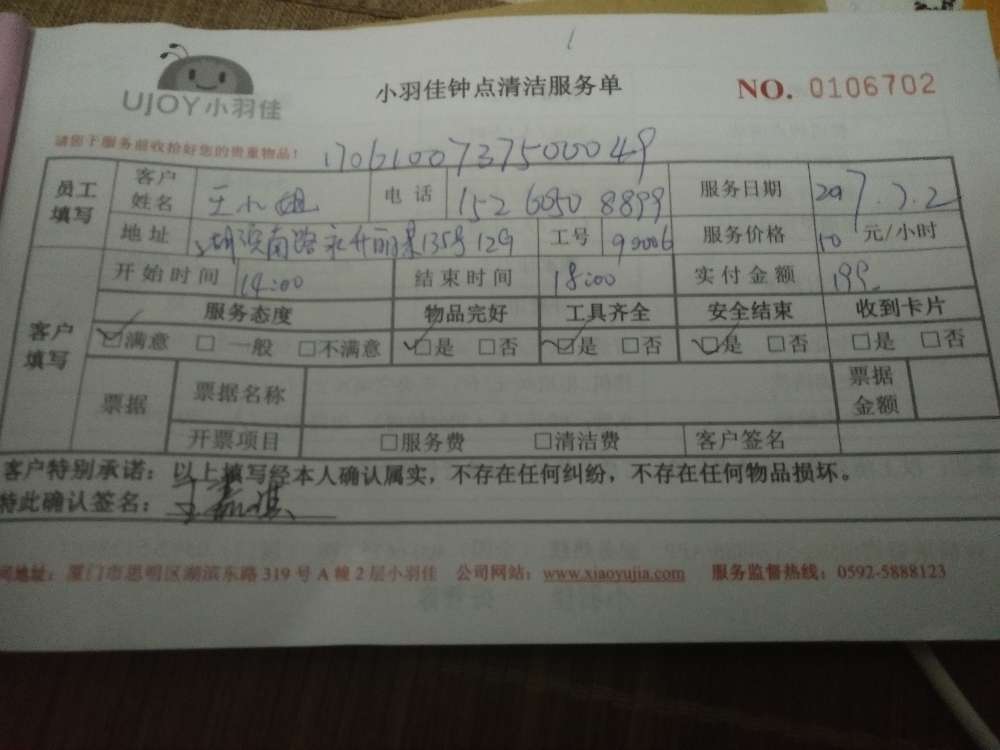 1
UJOY小羽佳
小羽佳钟点清洁服务单
NO. 0106702
请您于服务前收拾好您的贵重物品!
170610073750004 9
员工填写 客户姓名 王小姐 电话 152 6050 8899 服务日期 2017.7.2
地址 湖滨南路永升丽景135号12G 工号 90006 服务价格 50 元/小时
客户填写 开始时间 14:00 结束时间 18:00 实付金额 199
服务态度 物品完好 工具齐全 安全结束 收到卡片
☑满意 □一般 □不满意 ☑是 □否 ☑是 □否 ☑是 □否 □是 □否
票据 票据名称 票据金额
开票项目 □服务费 □清洁费 客户签名
客户特别承诺:以上填写经本人确认属实,不存在任何纠纷,不存在任何物品损坏。
特此确认签名:
网地址:厦门市思明区湖滨东路 319 号 A 幢 2 层小羽佳 公司网站:www.xiaoyujia.com 服务监督热线:0592-5888123